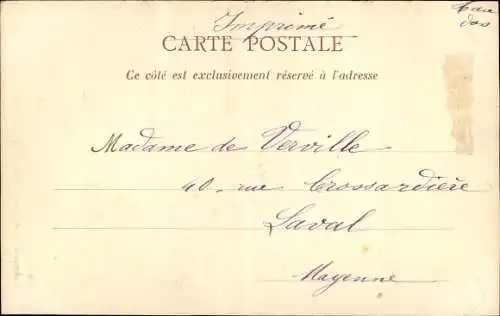 Imprimé
CARTE POSTALE
Ce côté est exclusivement réservé à l'adresse
Madame de Verville
40. rue Crossardière
Laval
Mayenne